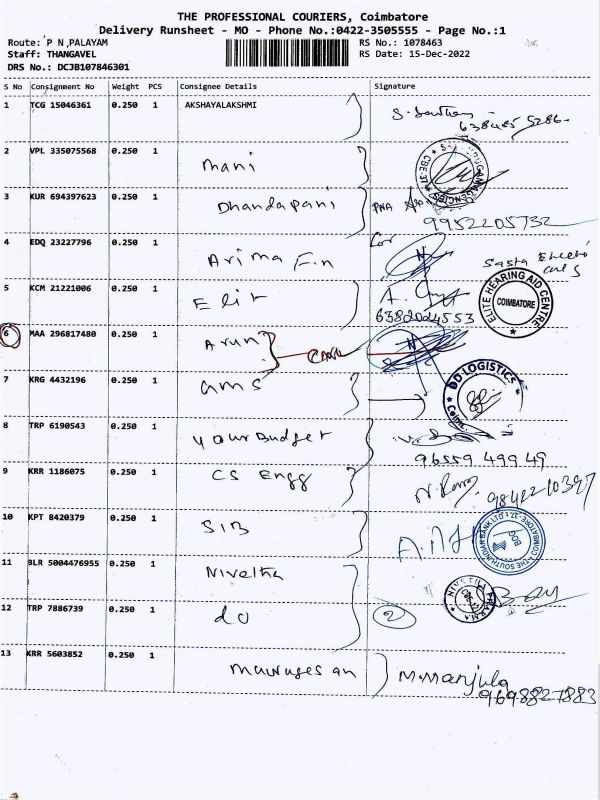 THE PROFESSIONAL COURIERS, Coimbatore
Delivery Runsheet - MO - Phone No.:0422-3505555 - Page No.:1
Route: P N PALAYAM RS No.: 1078463
Staff: THANGAVEL RS Date: 15-Dec-2022
DRS No.: DCJB107846301
S No Consignment No Weight PCS Consignee Details Signature
1 TCG 15046361 0.250 1 AKSHAYALAKSHMI
2 VPL 335075568 0.250 1 Mani
3 KUR 694397623 0.250 1 Dhandapani
9952205732
4 EDQ 23227796 0.250 1 Arima Fin
5 KCM 21221006 0.250 1 Elit
6382024553
ELITE HEARING AID CENTRE
COIMBATORE
6 MAA 296817480 0.250 1 Arun
7 KRG 4432196 0.250 1 ams
DD LOGISTICS
8 TRP 6190543 0.250 1 Your Budget
96559 49949
9 KRR 1186075 0.250 1 CS Engg
10 KPT 8420379 0.250 1 SIB
11 BLR 5004476955 0.250 1 Nivetha
12 TRP 7886739 0.250 1 do 2
13 KRR 5603852 0.250 1 Murugesan M.Manjula
9698827883